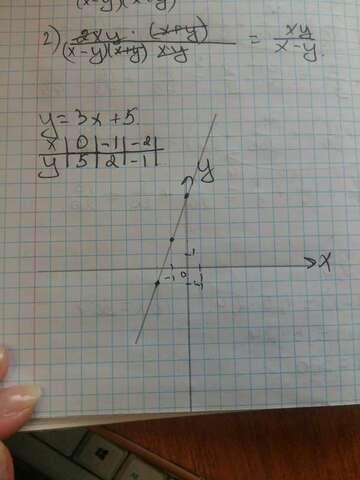 2) 2xy · (x+y) / (x-y)(x+y) xy = xy / x-y.
y = 3x + 5.
x | 0 | -1 | -2
y | 5 | 2 | -1
y
1
x
-1 0 1
-1